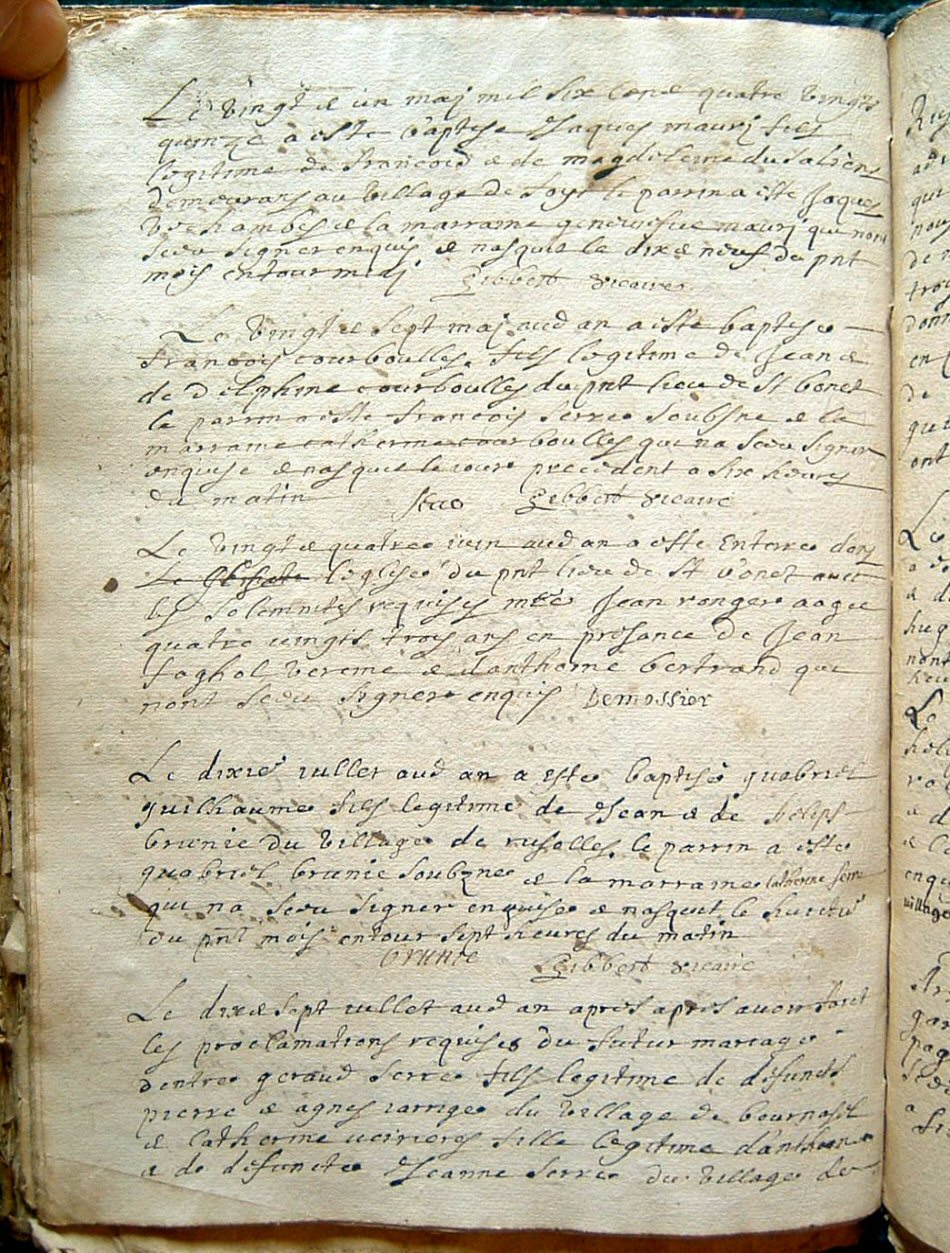 Le vingt & un maj mil six cens quatre vingts
quinze a esté baptisé Jaques mauri fils
legitime de francois & de magdeleine du
demeurans au village de le parrin a esté Jaques
& la marraine geneviefue mauri qui nont
sceu signer enquis & nasquit le dix & neuf du pnt
mois entour midi Gibbert vicaire
Le vingt & sept maj aud an a esté baptisé
francois courboulles fils legitime de Jean &
de delphine courboulles du pnt lieu de St bonet
le parrin a esté francois serre soubsne & la
marraine catherine courboulles qui na sceu signer
enquise & nasquit le iour precedent a six heures
du matin serre Gibbert vicaire
Le vingt & quatre iuin aud an a esté Enterre dans
le leglise du pnt lieu de St bonet avec
les solemnites requises Jean ronger aagé
quatre vingts trois ans en presance de Jean
faghol & danthoine bertrand qui
nont sceu signer enquis Demossier
Le dixie iullet aud an a esté baptisé guabriel
guilhaume fils legitime de Jean & de
brunie du village de ruselles le parrin a esté
guabriel brunie soubzne & la marraine catherine
qui na sceu signer enquise & nasquit le huictie
du pnt mois entour sept heures du matin
brunie Gibbert vicaire
Le dix & sept iullet aud an apres apres avoir faict
les proclamations requises du futur mariage
dentre geraud serre fils legitime de defunts
pierre & agnes iarrige du village de
& catherine fille legitime danthoine
& de defuncte Jeanne serre du village de